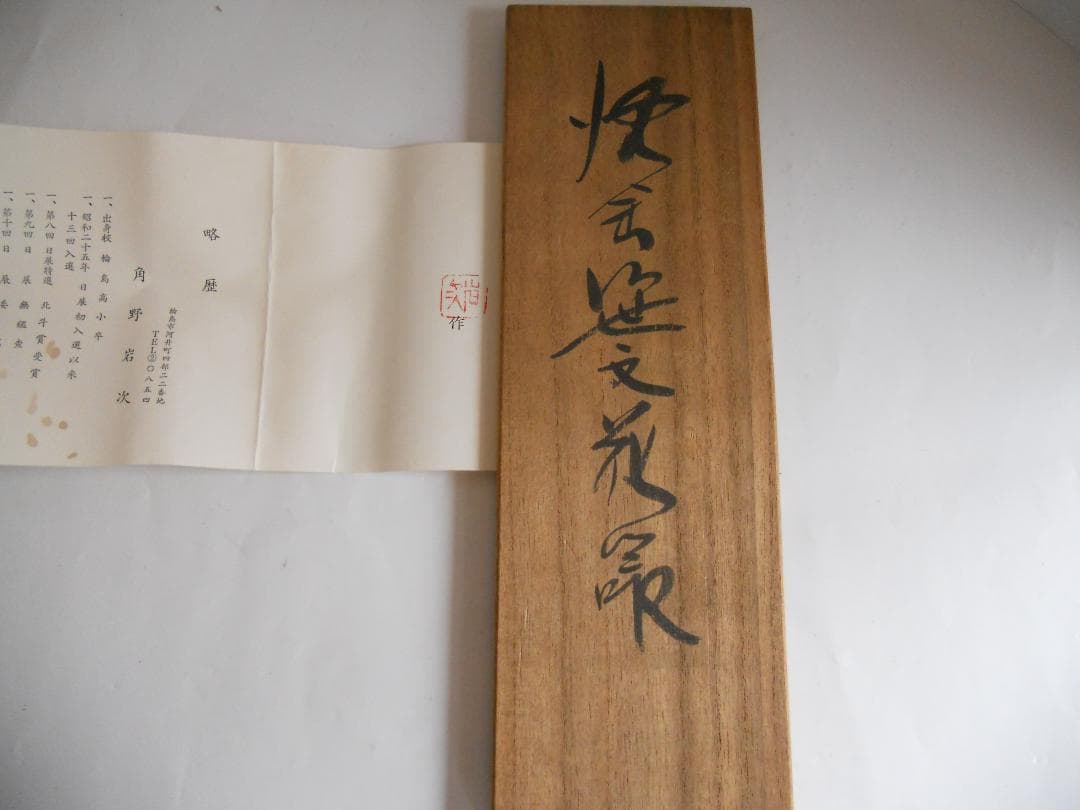 笹文花器
作
略歴
輪島市河井町四部二二番地
TEL②〇八五四
角野岩次
一、出身校 輪島高小卒
一、昭和二十五年 日展初入選以来
十三回入選
一、第八回日展特選 北斗賞受賞
一、第九回日展 無鑑査
一、第十回日展 委